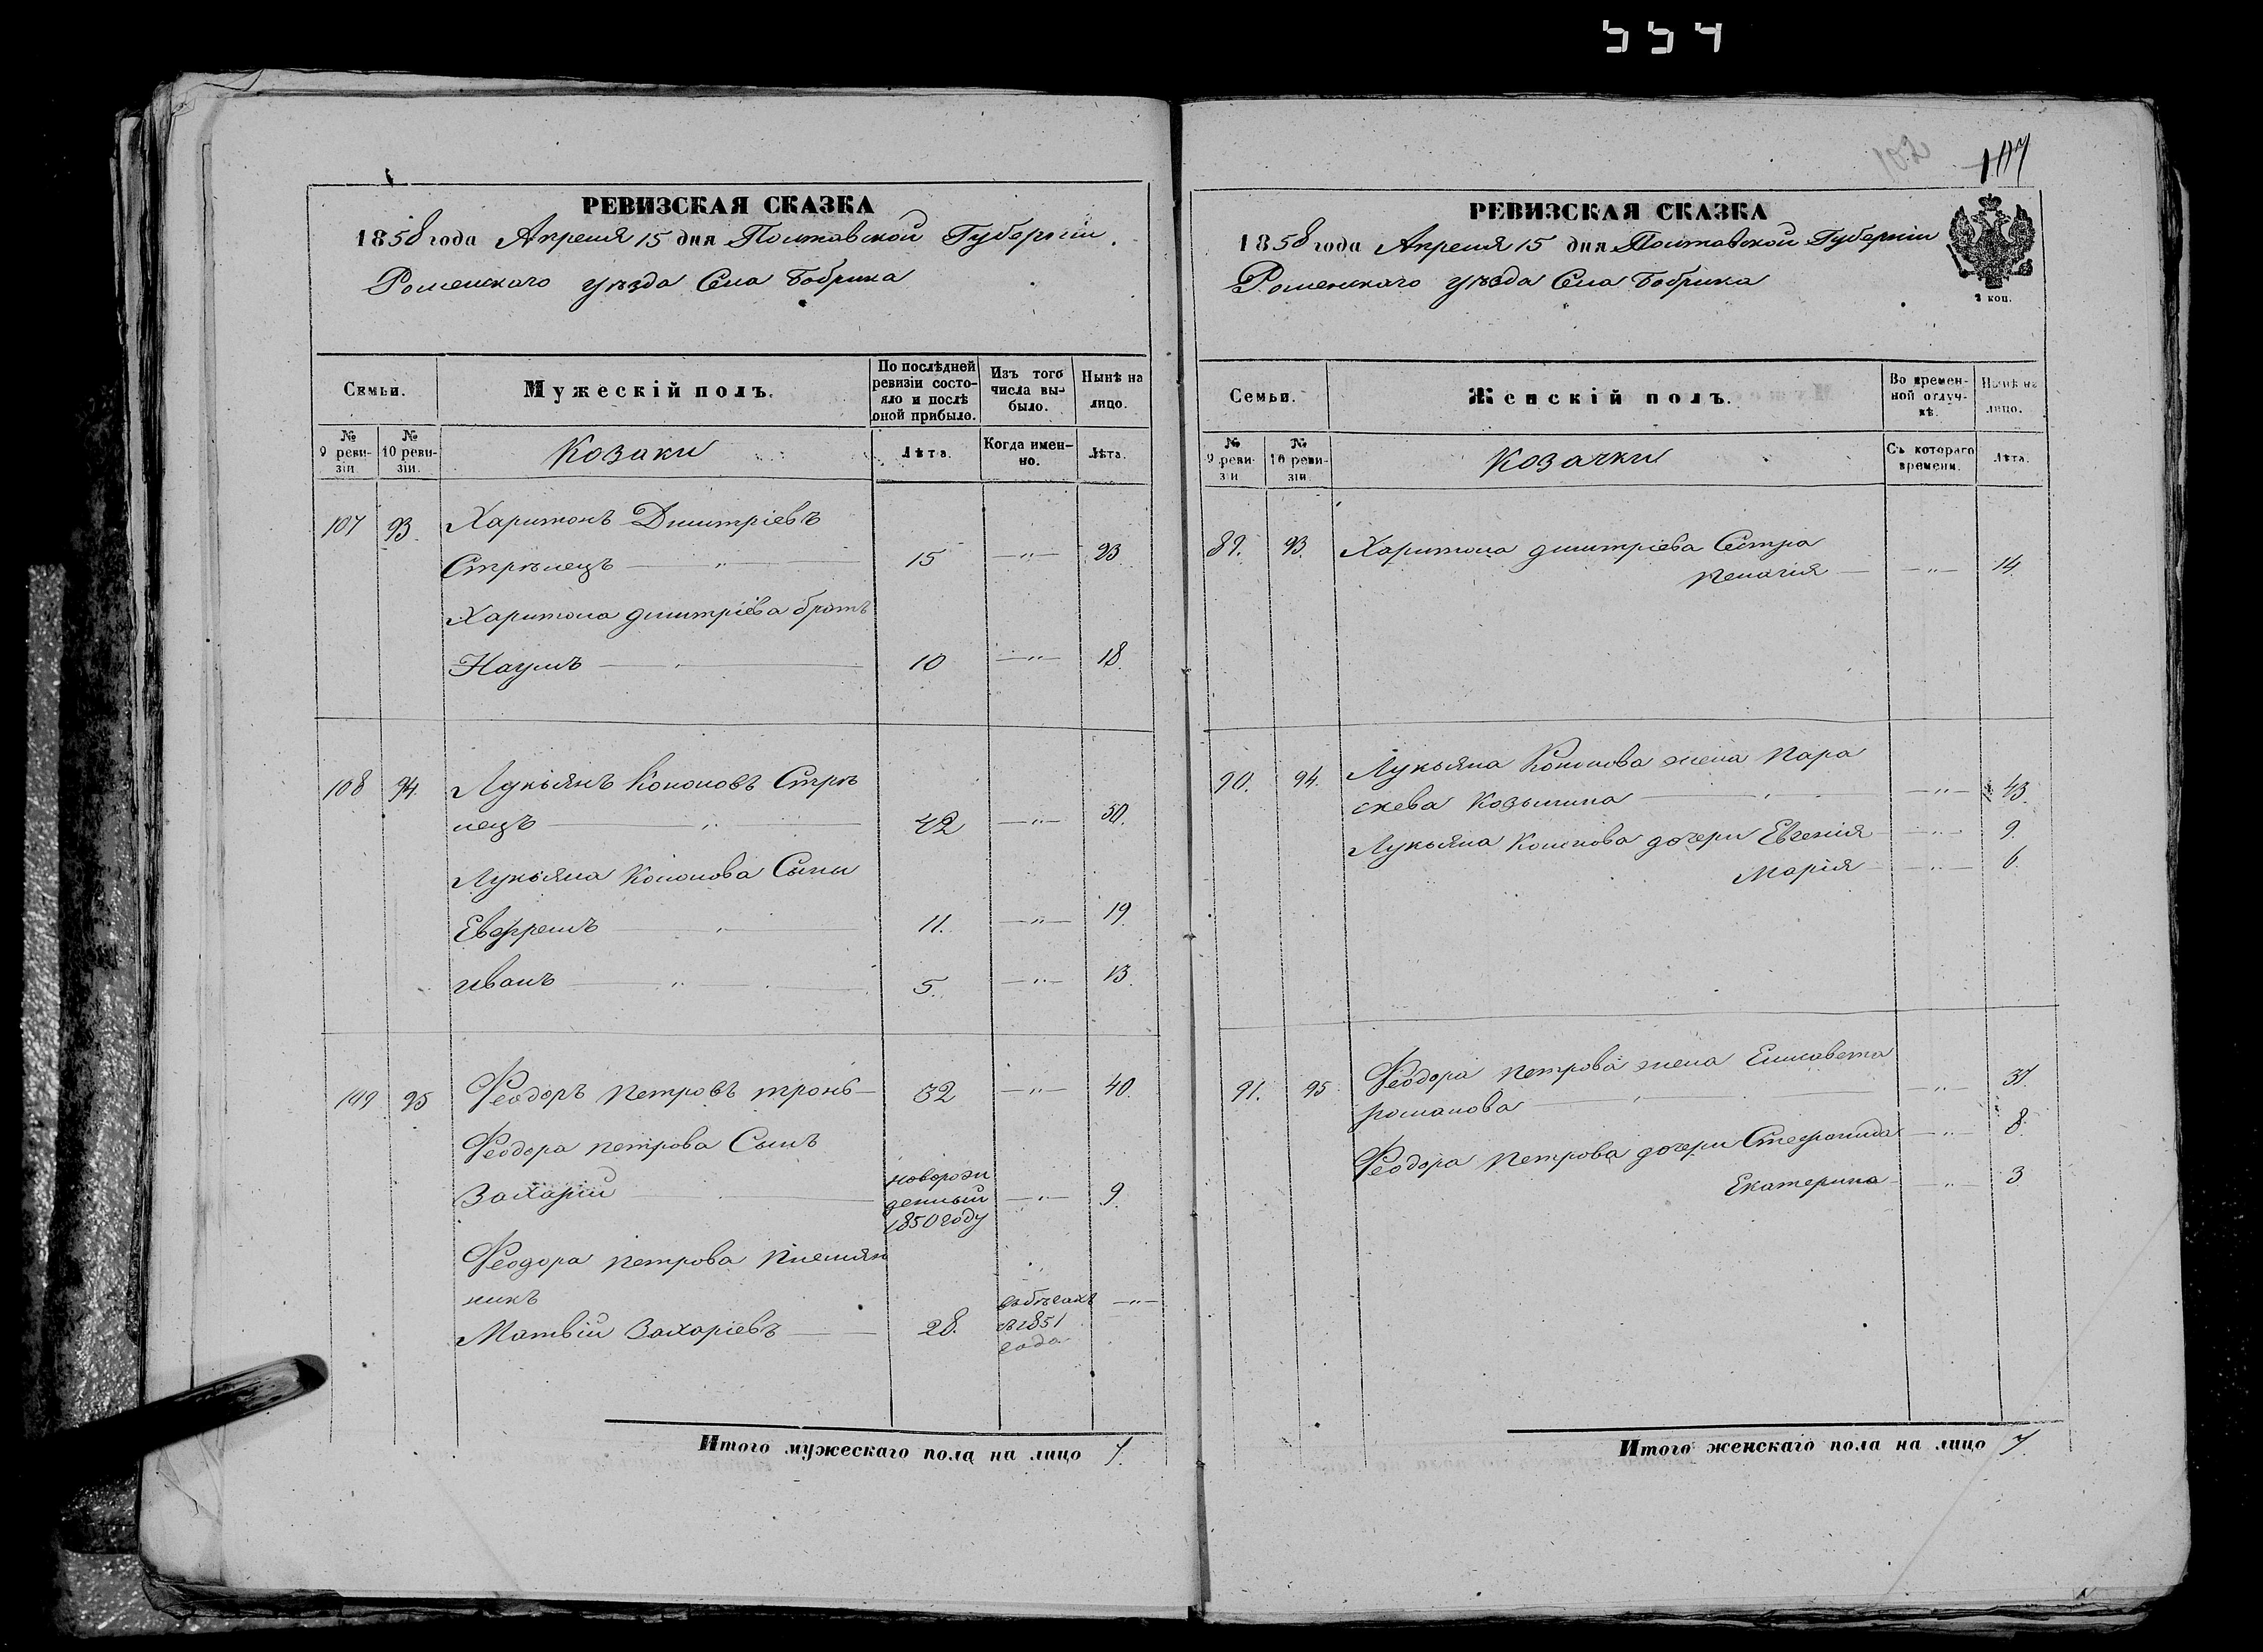 554
РЕВИЗСКАЯ СКАЗКА
1858 года Апреля 15 дня Полтавской Губерніи.
Роменскаго уѣзда Села Бобрика
Семьи.
Мужескій полъ.
По послѣдней ревизіи состояло и послѣ оной прибыло.
Изъ того числа выбыло.
Нынѣ на лицо.
№ 9 ревизіи
№ 10 ревизіи.
Козаки
Лѣта.
Когда именно.
Лѣта.
107 93 Харитонъ Дмитріевъ
Стрѣлецъ — " — 15 — " — 23
Харитона Дмитріева братъ
Наумъ — " — 10 — " — 18.
108 94 Лукьянъ Кононовъ Стрѣ
лецъ — " — 42 — " — 50.
Лукьяна Кононова Сыны
Евфремъ — " — 11. — " — 19
Иванъ — " — 5. — " — 13
109 95 Феодоръ Петровъ Тронь — 32 — " — 40.
Феодора Петрова Сынъ
Захарій — новорожденный 1850 году — " — 9.
Феодора Петрова Племян
никъ
Матвій Захаріевъ — 28. въ бѣгахъ съ 1851 года — " —
Итого мужескаго пола на лицо 7.
102 107
РЕВИЗСКАЯ СКАЗКА
1858 года Апреля 15 дня Полтавской Губерніи
Роменскаго уѣзда Села Бобрика
2 коп.
Семьи.
Женскій полъ.
Во временной отлучкѣ.
Нынѣ на лицо.
№ 9 ревизіи
№ 10 ревизіи.
Козачки
Съ котораго времени.
Лѣта.
89. 93. Харитона Дмитріева Сестра
Пелагія — — " — 14.
90. 94. Лукьяна Кононова жена Пара
скева Козьмина — " — — " — 43.
Лукьяна Кононова дочери Евгенія — " — 9.
Марія — " — 6.
91. 95. Феодора Петрова жена Елисавета
Романова — " — — " — 37.
Феодора Петрова дочери Стефанида — " — 8.
Екатерина — " — 3
Итого женскаго пола на лицо 7.